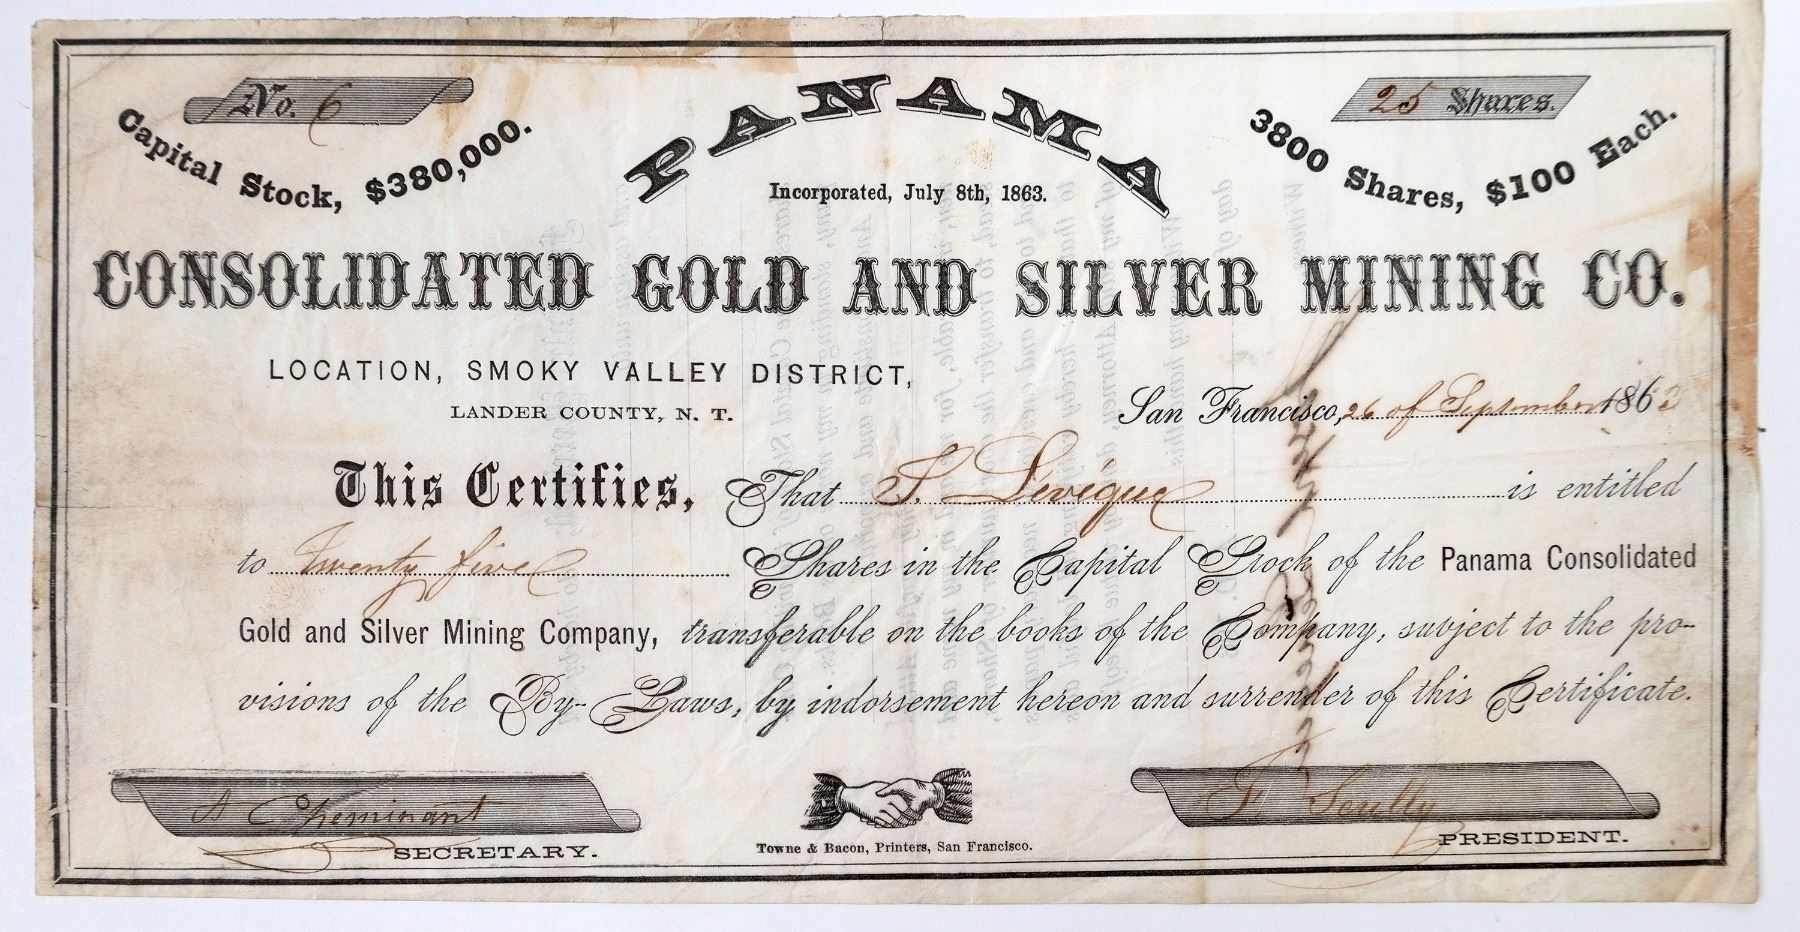 No. 6
25 Shares.
Capital Stock, $380,000.
PANAMA
3800 Shares, $100 Each.
Incorporated, July 8th, 1863.
CONSOLIDATED GOLD AND SILVER MINING CO.
LOCATION, SMOKY VALLEY DISTRICT,
LANDER COUNTY, N. T.
San Francisco, 26 of September 1863
This Certifies, That S. Levêque is entitled
to Twenty five Shares in the Capital Stock of the Panama Consolidated
Gold and Silver Mining Company, transferable on the books of the Company, subject to the pro-
visions of the By-Laws, by indorsement hereon and surrender of this Certificate.
A Cheminant
SECRETARY.
F. Scully
PRESIDENT.
Towne & Bacon, Printers, San Francisco.